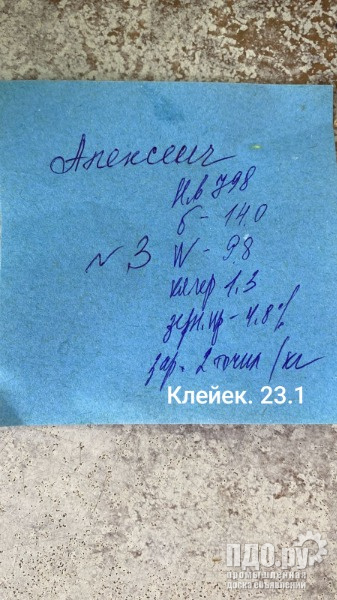 Алексеич
н.в 798
б - 14.0
~ 3 W - 9.8
клер 1.3
зерн.пр - 4.8%
зар. 2 точил/кг
Клейек. 23.1
ПДО.ру
промышленная
доска объявлений